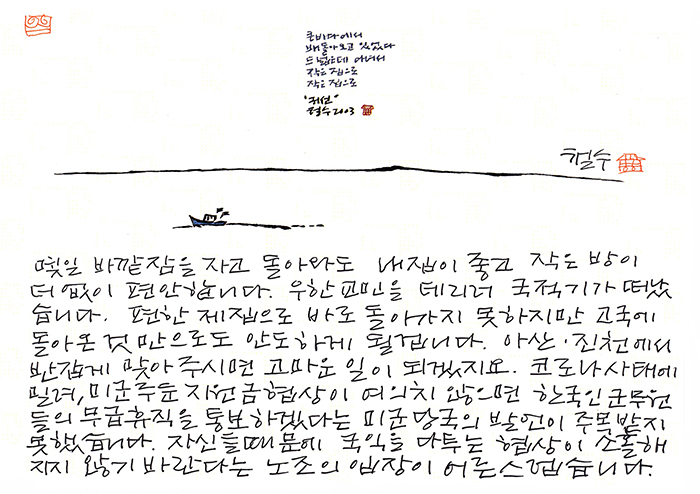 큰바다에서
배돌아오고 있었다
드넓은데 떠나서
작은 집으로
작은 집으로
"귀선"
철수 2003
철수
몇일 바깥잠을 자고 돌아와도 내집이 좋고 작은 방이
더없이 편안합니다. 우한교민을 데리러 국적기가 떠났
습니다. 편한 제집으로 바로 돌아가지 못하지만 고국에
돌아온 것 만으로도 안도하게 될겁니다. 아산·진천에서
반갑게 맞아 주시면 고마운 일이 되겠지요. 코로나사태에
밀려, 미군주둔 지원금협상이 여의치 않으면 한국인 군무원
들의 무급휴직을 통보하겠다는 미군당국의 발언이 주목받지
못했습니다. 자신들때문에 국익을 다투는 협상이 소홀해
지지 않기 바란다는 노조의 입장이 어른스럽습니다.